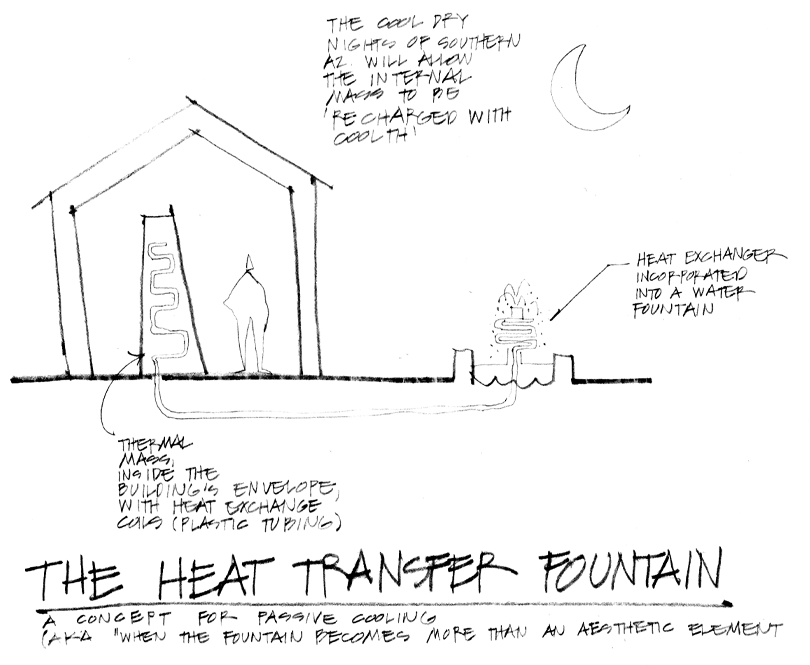 THE COOL DRY
NIGHTS OF SOUTHERN
AZ. WILL ALLOW
THE INTERNAL
MASS TO BE
'RECHARGED WITH
COOLTH'
HEAT EXCHANGER
INCORPORATED
INTO A WATER
FOUNTAIN
THERMAL
MASS,
INSIDE THE
BUILDING'S ENVELOPE,
WITH HEAT EXCHANGE
COILS (PLASTIC TUBING)
THE HEAT TRANSFER FOUNTAIN
A CONCEPT FOR PASSIVE COOLING
(AKA "WHEN THE FOUNTAIN BECOMES MORE THAN AN AESTHETIC ELEMENT